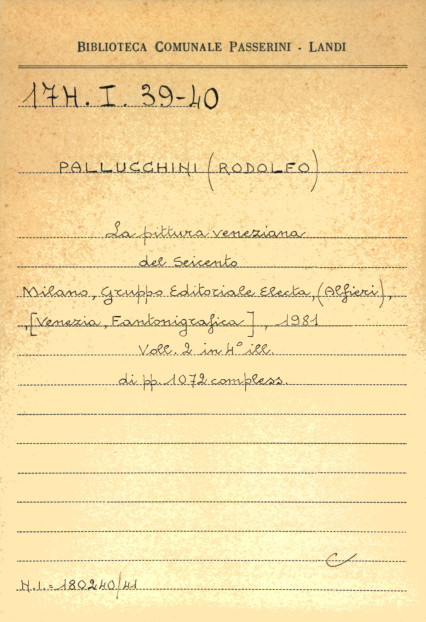 BIBLIOTECA COMUNALE PASSERINI - LANDI
17H. I. 39-40
PALLUCCHINI (RODOLFO)
La pittura veneziana
del Seicento
Milano, Gruppo Editoriale Electa, (Alfieri),
,[Venezia, Fantonigrafica], 1981
Voll. 2 in 4° ill.
di pp. 1072 compless.
C
N.I.= 180240/41